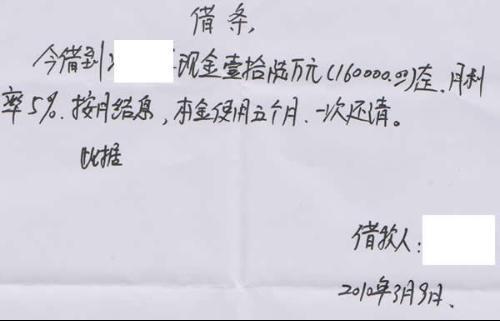 借条,
今借到 现金壹拾陆万元(160000.00) 月利
率5%.按月结息,本金使用五个月.一次还清。
此据
借款人:
2010年3月9日.